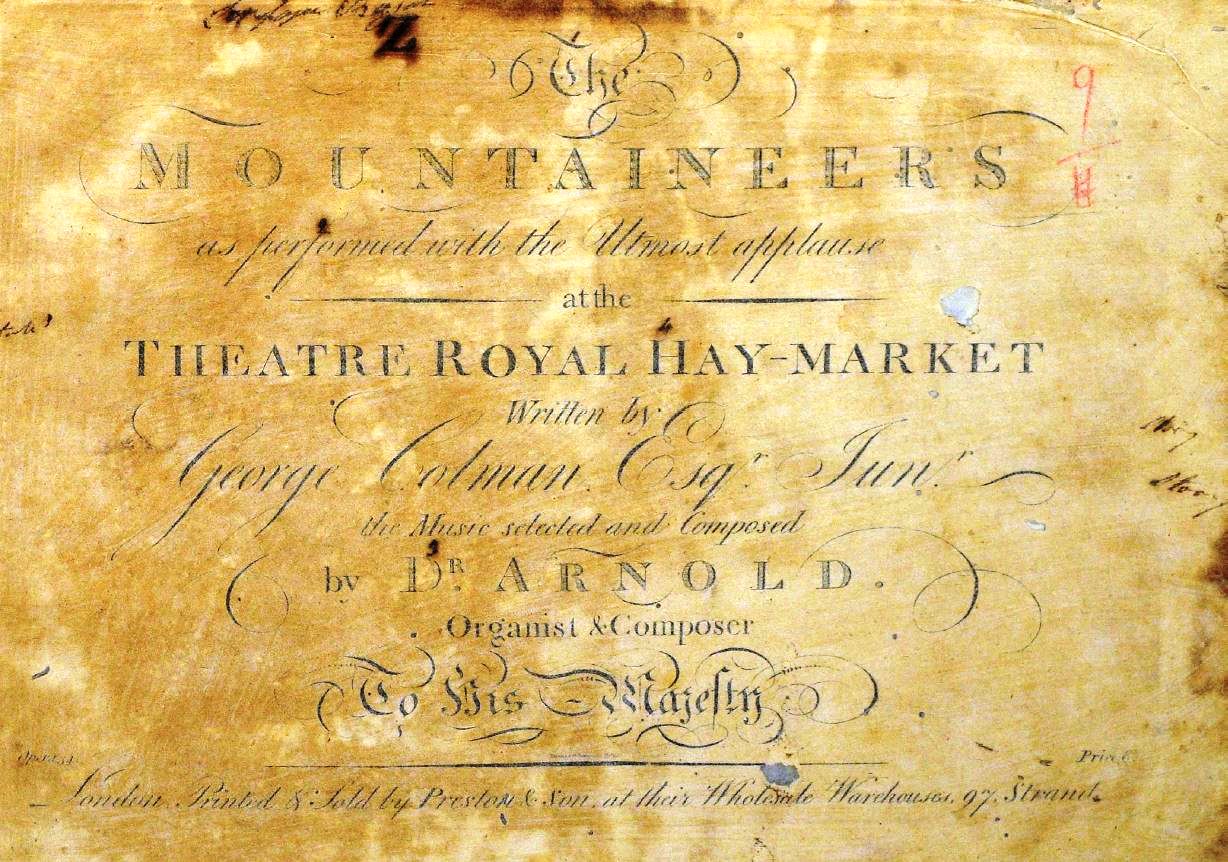 The
MOUNTAINEERS
as performed with the Utmost applause
at the
THEATRE ROYAL HAY-MARKET
Written by
George Colman Esqr. Junr.
the Music selected and Composed
by DR. ARNOLD.
Organist & Composer
To His Majesty
Price 6
London, Printed & Sold by Preston & Son, at their Wholesale Warehouses, 97, Strand.
9